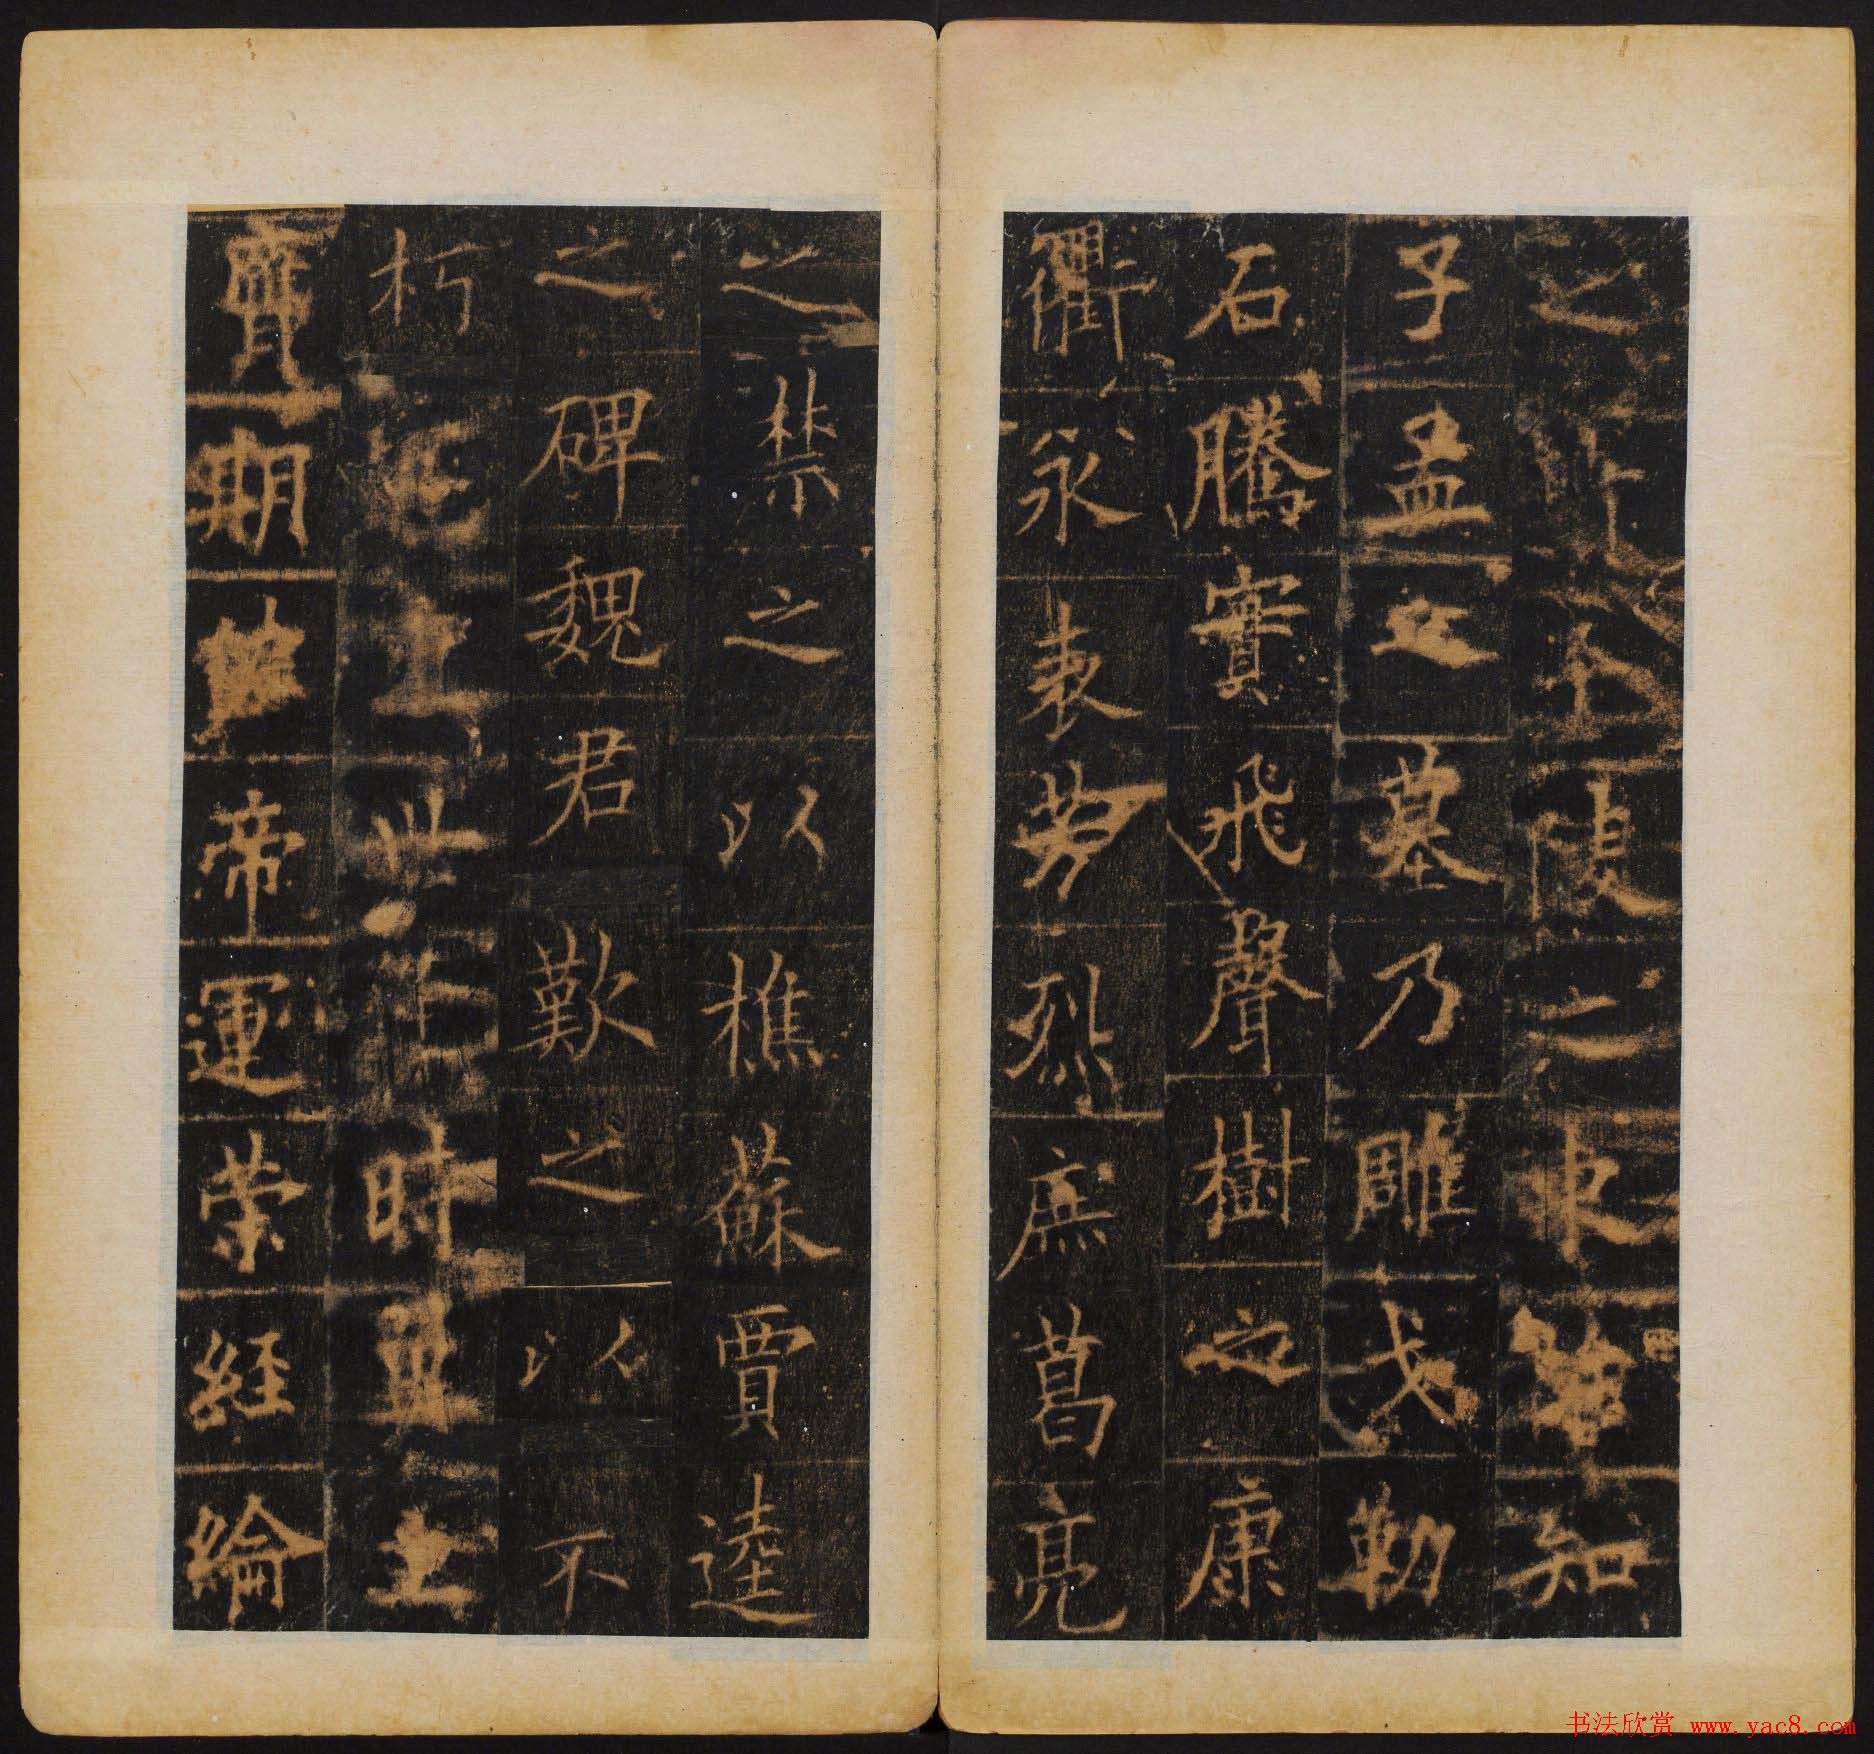 之之東知
子孟之墓乃雕戈勒
石騰實飛聲樹之康
衢永表芳烈庶葛亮
之禁之以樵蘇賈逵
之碑魏君歎之以不
朽世時主
期帝運榮經綸
书法欣赏 www.yac8.com